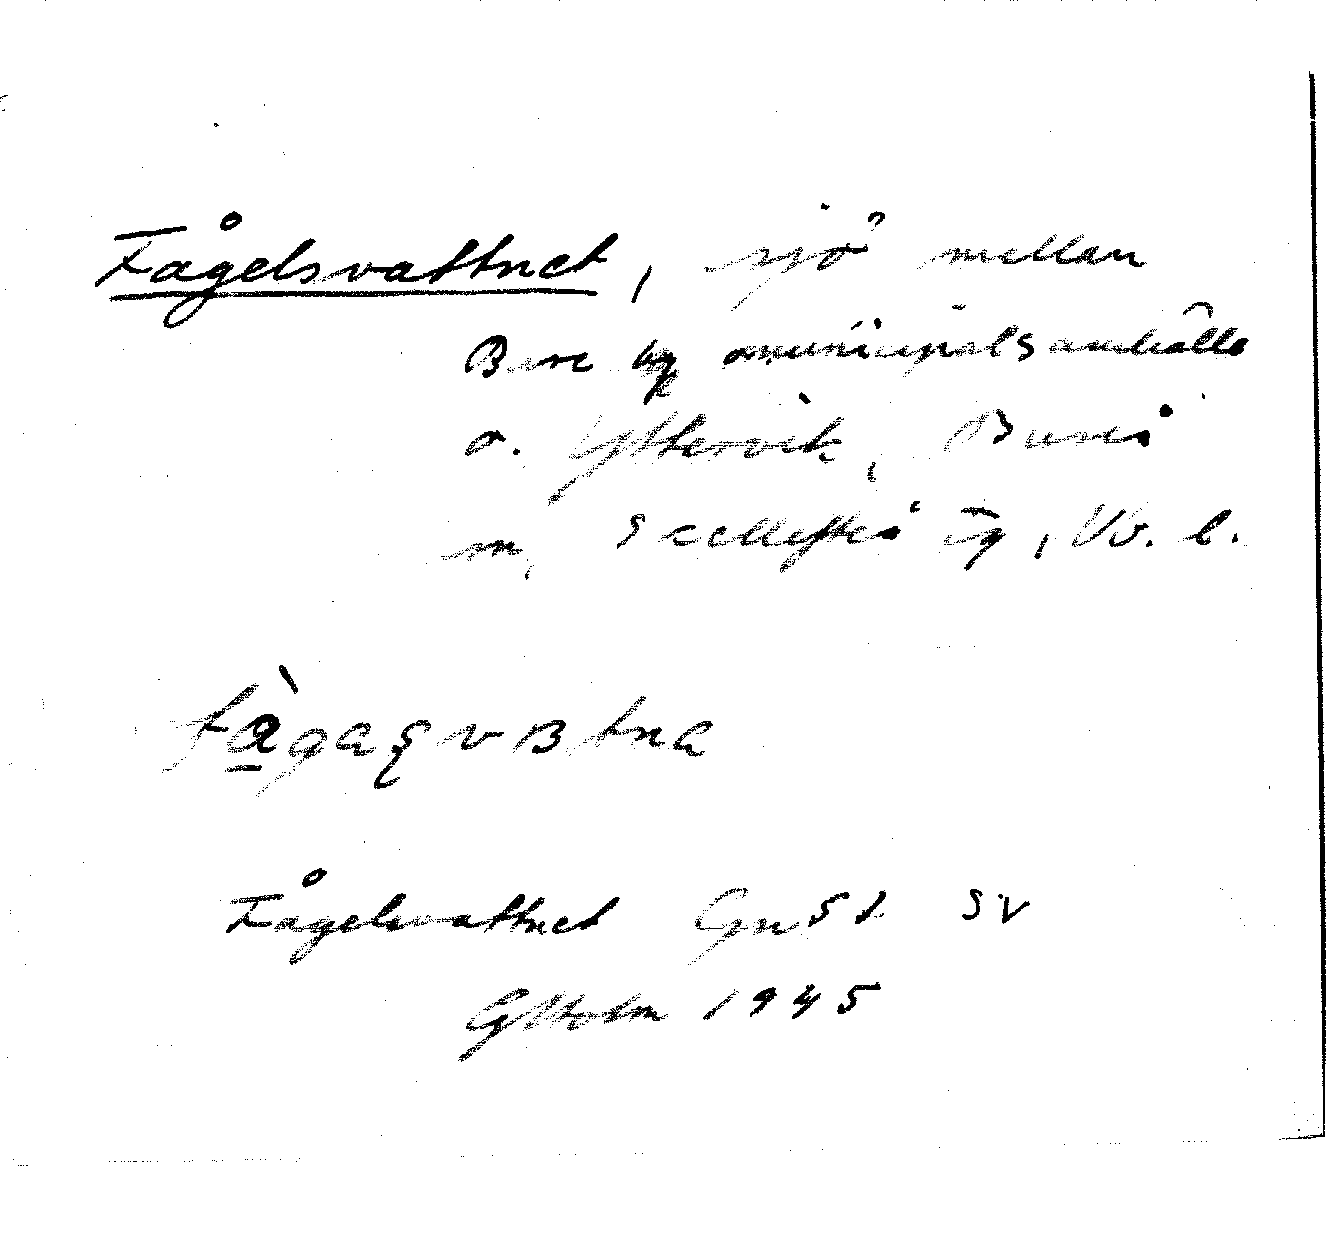 Fågelsvattnet, sjö mellan
Bure by municipalsamhälle
o. Yttervik, Bureå
m, Skellefteå tg, Vb. l.
fàgaşvBtna
Fågelsvattnet Gn51 SV
GHolm 1945